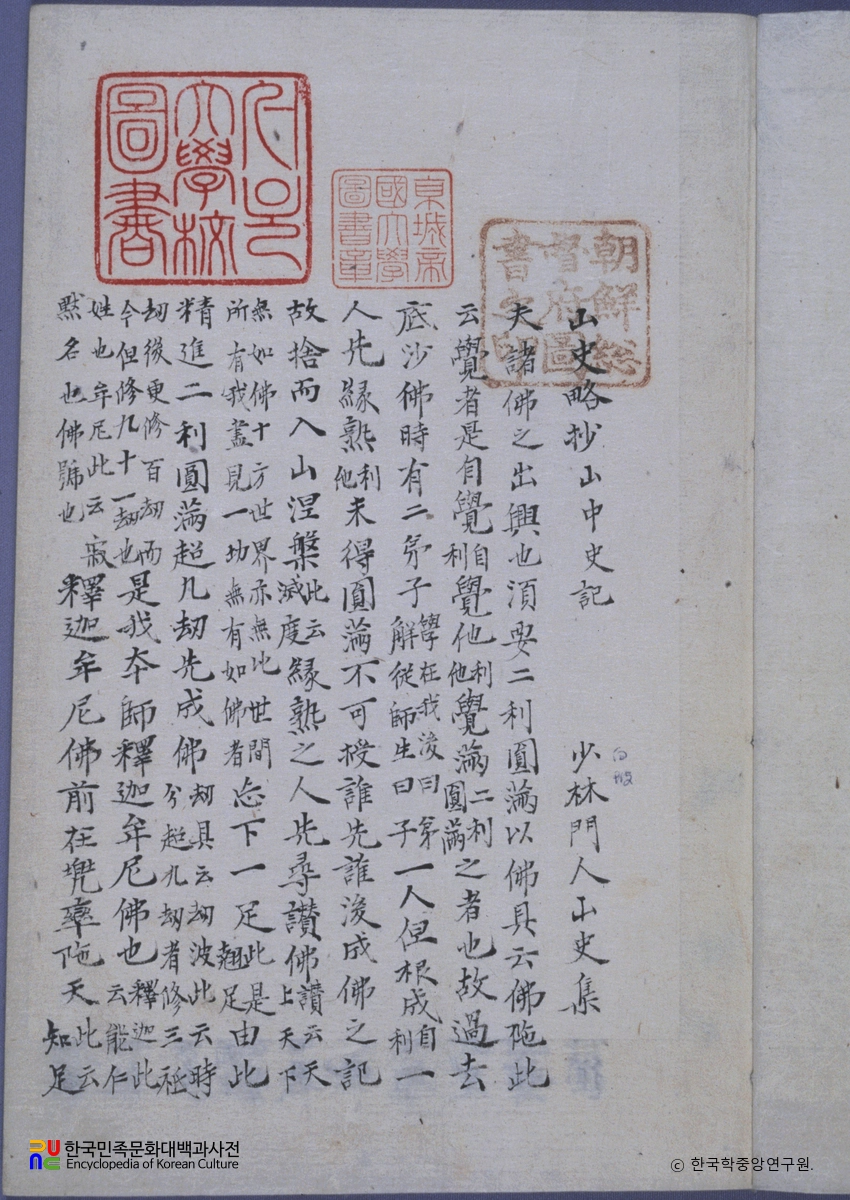 山史略抄 山中史記 少林門人山史集
夫諸佛之出興也須要二利圓滿以佛具云佛陁此
云覺者是自覺自利覺他利他覺滿二利圓滿之者也故過去
底沙佛時有二弟子學在我後曰弟解從師生曰子一人但根成自利一
人先緣熟利他未得圓滿不可授誰先誰後成佛之記
故捨而入山涅槃此云滅度緣熟之人先尋讃佛讃云天上天下
無如佛十方世界亦無比世間所有我盡見一切無有如佛者忘下一足此是翹足由此
精進二利圓滿超九劫先成佛劫具云劫波此云時分超九劫者修三祗
劫後更修百劫而今但修九十一劫也是我本師釋迦牟尼佛也釋迦此云能仁
姓也牟尼此云寂默名也佛號也釋迦牟尼佛前在兜率陁天此云知足
朝鮮総督府圖書之印
京城帝國大學圖書章
大學校圖書
한국민족문화대백과사전
Encyclopedia of Korean Culture
© 한국학중앙연구원.